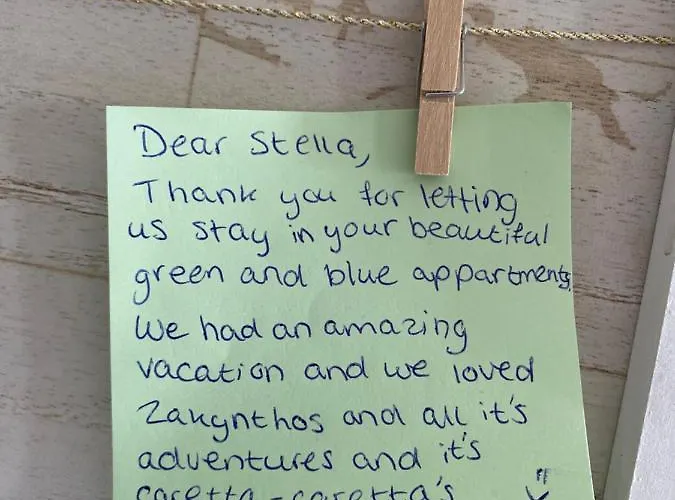 Dear Stella,
Thank you for letting
us stay in your beautiful
green and blue appartments.
We had an amazing
vacation and we loved
Zakynthos and all it's
adventures and it's
caretta-caretta's